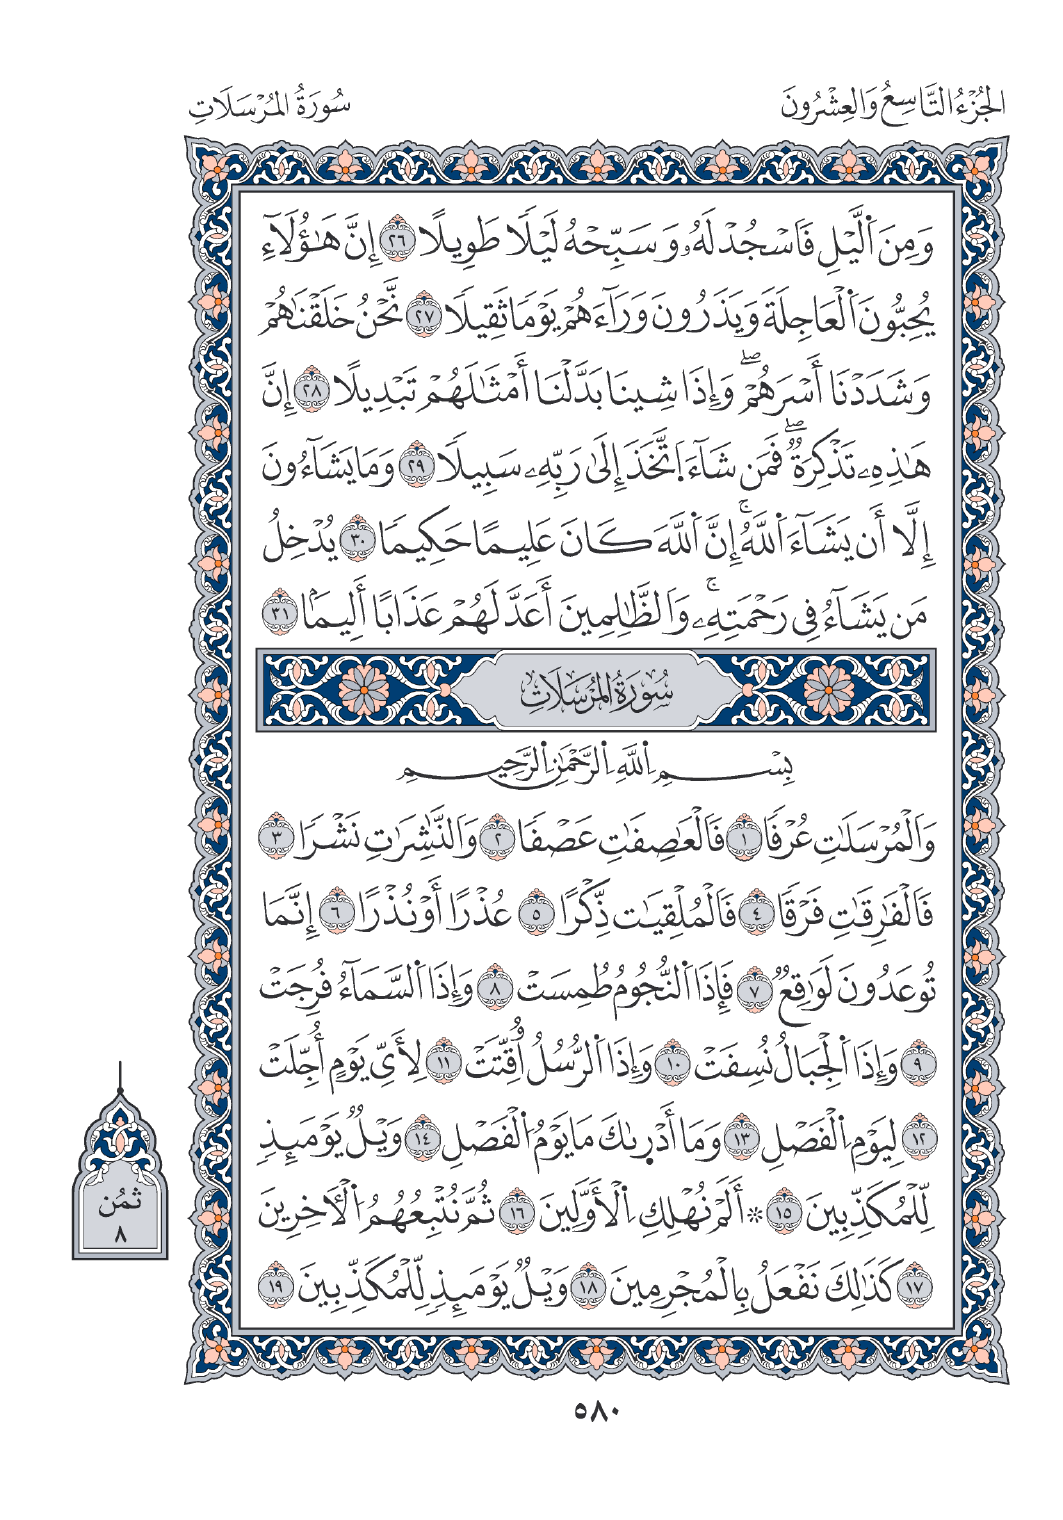 الجُزْءُ التَّاسِعُ وَالعِشْرُونَ
سُورَةُ المُرْسَلَاتِ
وَمِنَ اَ۬لَّيْلِ فَاسْجُدْ لَهُۥ وَسَبِّحْهُ لَيْلٗا طَوِيلًا ٢٦ إِنَّ هَٰٓؤُلَآءِ
يُحِبُّونَ اَ۬لْعَاجِلَةَ وَيَذَرُونَ وَرَآءَهُمْ يَوْمٗا ثَقِيلٗا ٢٧ نَّحْنُ خَلَقْنَٰهُمْ
وَشَدَدْنَا أَسْرَهُمْۖ وَإِذَا شِينَا بَدَّلْنَا أَمْثَٰلَهُمْ تَبْدِيلًا ٢٨ إِنَّ
هَٰذِهِۦ تَذْكِرَةٞۖ فَمَن شَآءَ اَ۪تَّخَذَ إِلَىٰ رَبِّهِۦ سَبِيلٗا ٢٩ وَمَا يَشَآءُونَ
إِلَّا أَن يَشَآءَ اَ۬للَّهُۚ إِنَّ اَ۬للَّهَ كَانَ عَلِيمًا حَكِيمٗا ٣٠ يُدْخِلُ
مَن يَشَآءُ فِي رَحْمَتِهِۦۚ وَاَلظَّٰلِمِينَ أَعَدَّ لَهُمْ عَذَابًا أَلِيمَۢا ٣١
سُورَةُ المُرْسَلَاتِ
بِسْمِ اِ۬للَّهِ اِ۬لرَّحْمَٰنِ اِ۬لرَّحِيمِ
وَالْمُرْسَلَٰتِ عُرْفٗا ١ فَالْعَٰصِفَٰتِ عَصْفٗا ٢ وَالنَّٰشِرَٰتِ نَشْرٗا ٣
فَالْفَٰرِقَٰتِ فَرْقٗا ٤ فَالْمُلْقِيَٰت ذِّكْرًا ٥ عُذْرًا أَوْ نُذْرًا ٦ إِنَّمَا
تُوعَدُونَ لَوَٰقِعٞ ٧ فَإِذَا اَ۬لنُّجُومُ طُمِسَتْ ٨ وَإِذَا اَ۬لسَّمَآءُ فُرِجَتْ
٩ وَإِذَا اَ۬لْجِبَالُ نُسِفَتْ ١٠ وَإِذَا اَ۬لرُّسُلُ أُقِّتَتْ ١١ لِأَيِّ يَوْمٍ أُجِّلَتْ
١٢ لِيَوْمِ اِ۬لْفَصْلِ ١٣ وَمَا أَدْر۪ىٰكَ مَا يَوْمُ اُ۬لْفَصْلِ ١٤ وَيْلٞ يَوْمَئِذٖ
لِّلْمُكَذِّبِينَ ١٥ ۞ أَلَمْ نُهْلِكِ اِ۬لْأَوَّلِينَ ١٦ ثُمَّ نُتْبِعُهُمُ اُ۬لْأٓخِرِينَ
١٧ كَذَٰلِكَ نَفْعَلُ بِالْمُجْرِمِينَ ١٨ وَيْلٞ يَوْمَئِذٖ لِّلْمُكَذِّبِينَ ١٩
ثمُن
٨
٥٨٠